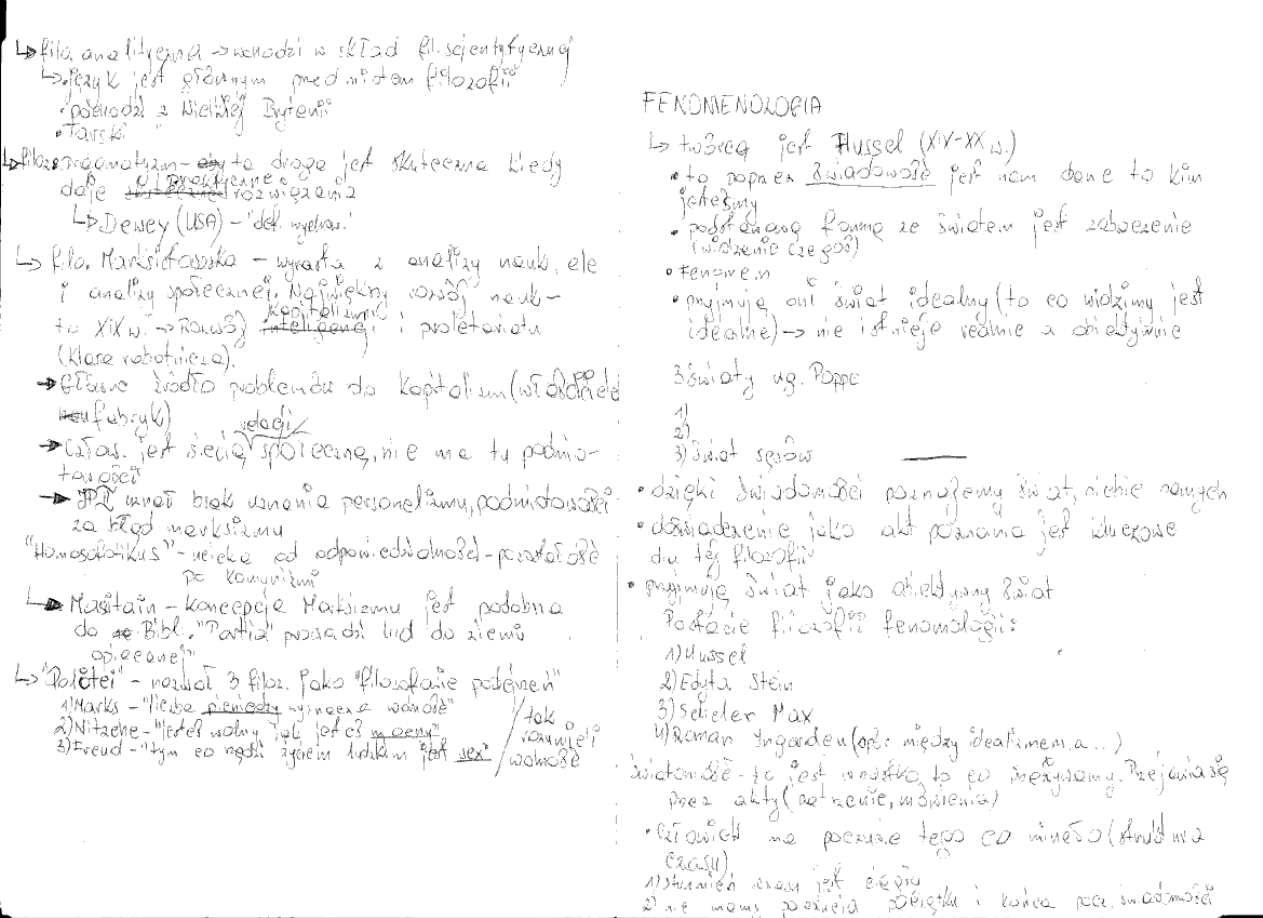 ↳ filo. analityczna → wchodzi w skład fil. scjentyfycznej
↳ • Język jest głównym przedmiotem filozofii
• pochodzi z Wielkiej Brytenii
• Tarski "
pragmatyzm - ta droga jest skuteczna kiedy
daje praktyczne rozwiązania
↳ Dewey (USA) - 'def.
↳ filo. Marksistowska - wyrasta z analizy nauk, ale
i analizy społecznej. Największy rozwój nauk -
to XIX w. → Rozwój kapitalizmu i proletariatu
(klasa robotnicza).
→ Główne źródło problemów do kapitalizm (właściciele
fabryk)
→ Człow. jest siecią relacji społeczną, nie ma tu podmio-
towości
→ JPII uznał brak uznania personalizmu, podmiotowości
za błąd marksizmu
"Homosofotikus" - ucieka od odpowiedzialności - pozostałość
po komuniźmi
↳ Maritain - koncepcje Marksizmu jest podobna
do Bibl. "Partia" prowadzi lud do ziemi
obiecanej"
↳ - nazwał 3 filoz. jako "filozofowie podejrzeń"
1) Marks - "liczba pieniędzy wyznacza wolność"
2) Nitzche - "jesteś wolny jak jesteś mocny"
3) Freud - "tym co rządzi życiem ludzkim jest sex"
/ tak rozumieli wolność
FENOMENOLOGIA
↳ twórcą jest Hussel (XIX-XX w.)
• to poprzez świadomość jest nam dane to kim
jesteśmy
• podstawową formą ze światem jest zobaczenie
(widzenie czegoś)
• Fenomen
• przyjmują oni świat idealny (to co widzimy jest
idealne) → nie istnieje realnie a obiektywnie
3 światy wg. Poppe
1)
2)
3) Świat sęsów
• dzięki świadomości poznajemy świat, siebie samych
• doświadczenie jako akt poznania jest kluczowe
dla tej filozofii
• przyjmują świat jako obiektywny świat
Postacie filozofii fenomologii:
1) Hussel
2) Edyta Stein
3) Scheler Max
4) Roman Ingarden (spór między idealizmem a ..)
świadomość - to jest wszystko, to co przeżywamy. Przejawia się
przez akty (patrzenie, mówienia)
• Człowiek ma poczucie tego co mineło (struktura
czasu)
1) strumień czasu jest ciągły
2) nie mamy poczucia początku i końca pocz. świadomości